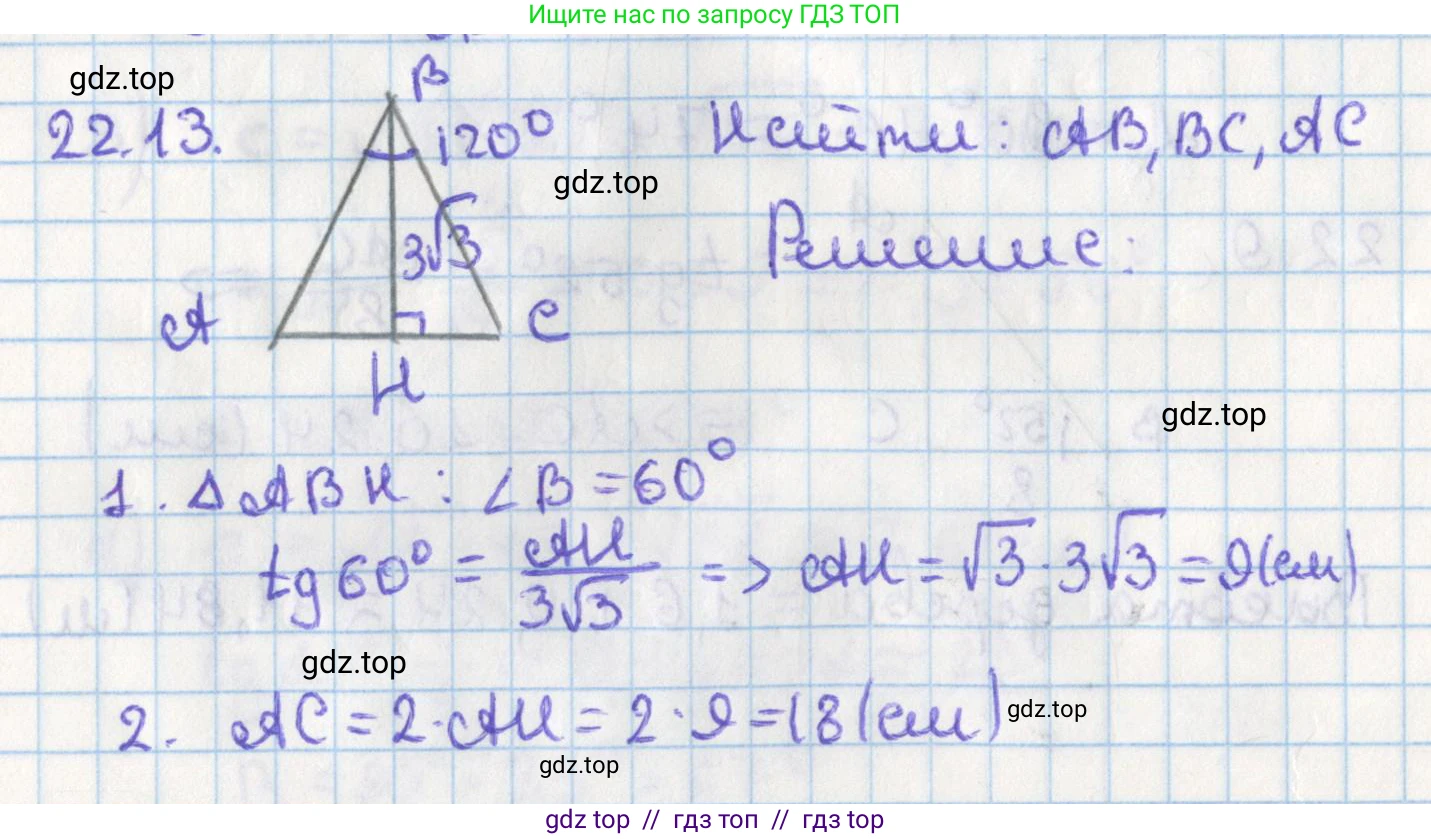 Ищите нас по запросу ГДЗ ТОП
gdz.top
22.13.
B
120°
Найти: AB, BC, AC
gdz.top
3√3
Решение:
A
C
H
gdz.top
1. △ABH: ∠B = 60°
tg 60° = AH / 3√3 => AH = √3 · 3√3 = 9 (см)
gdz.top
2. AC = 2 · AH = 2 · 9 = 18 (см)
gdz.top
gdz.top
gdz top // гдз топ // гдз top